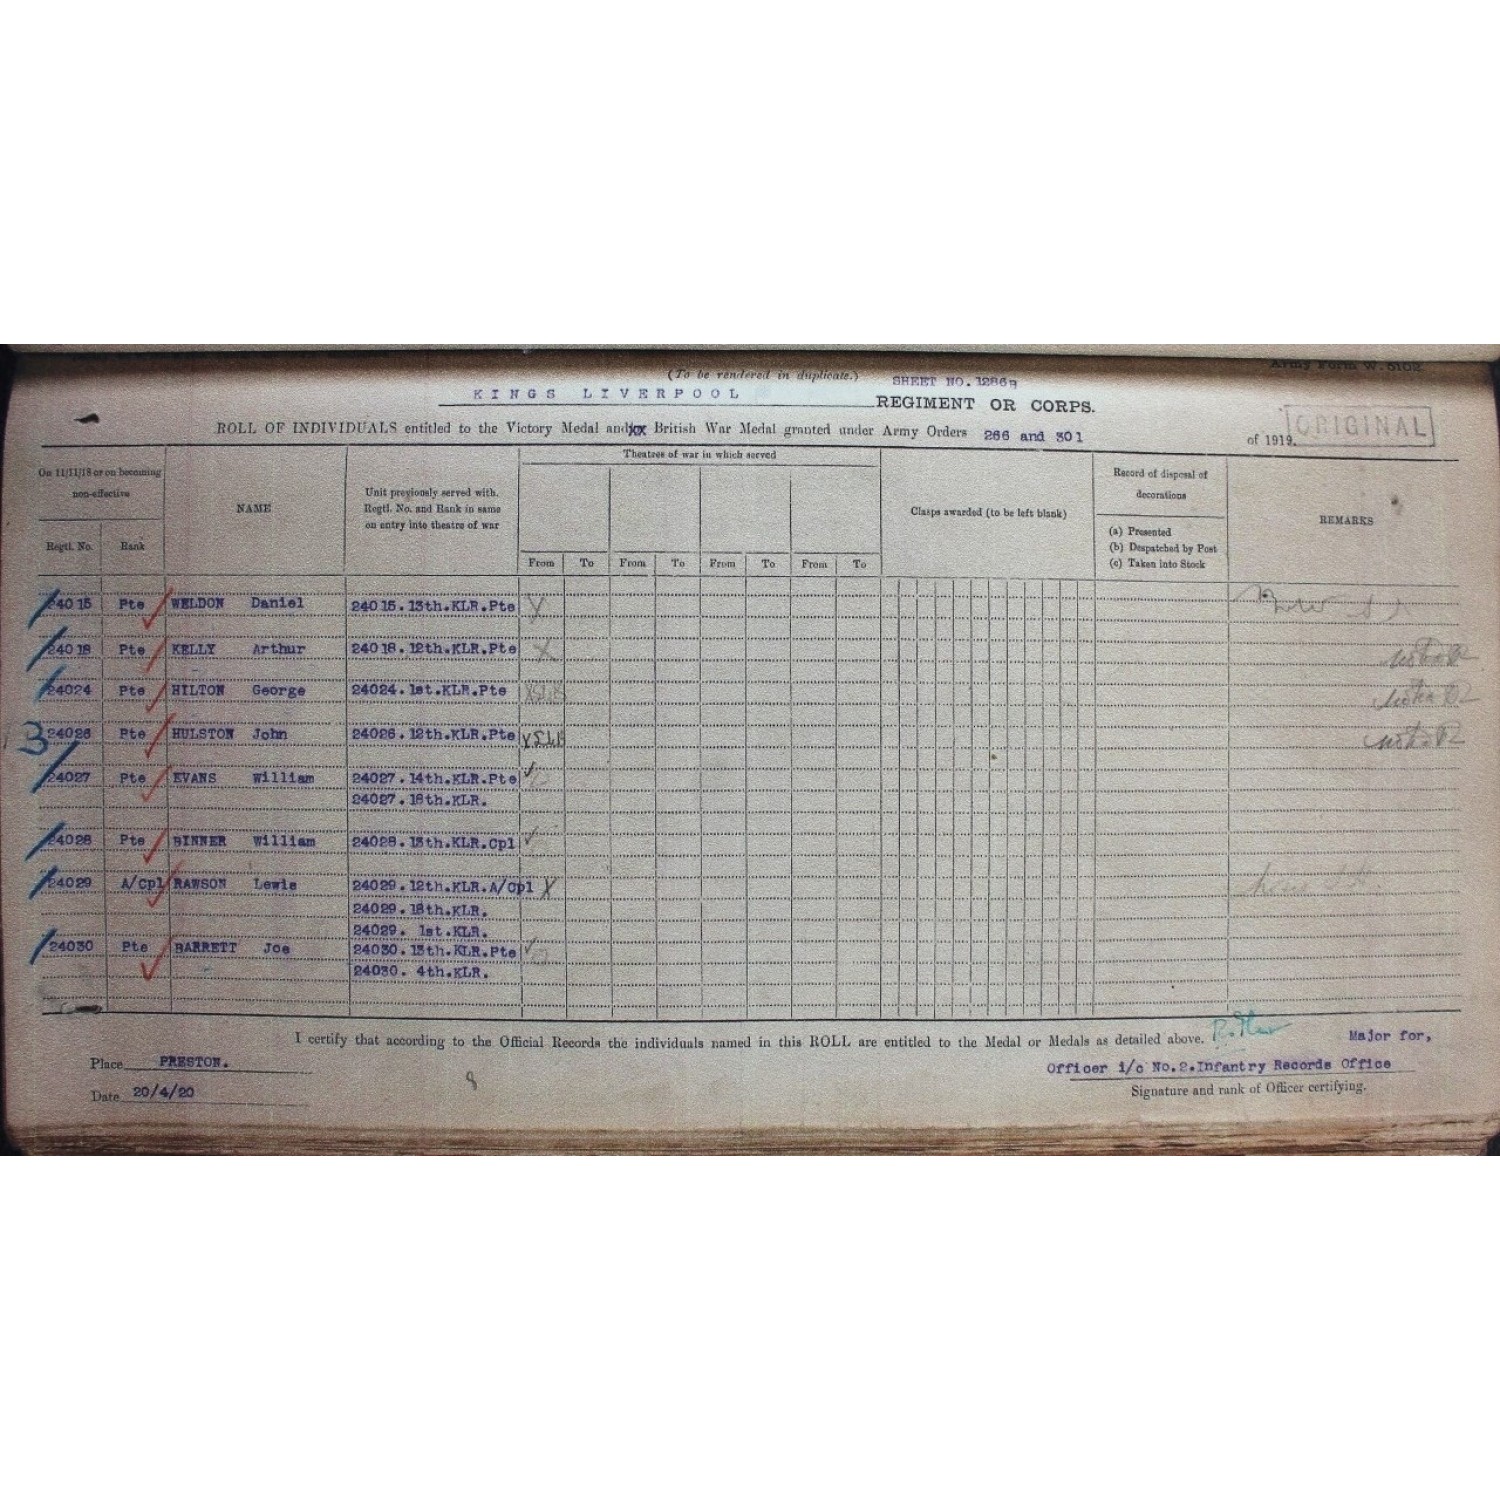 Army Form W. 5102.
(To be rendered in duplicate.) SHEET NO. 12869
KINGS LIVERPOOL REGIMENT OR CORPS.
ORIGINAL
ROLL OF INDIVIDUALS entitled to the Victory Medal and British War Medal granted under Army Orders 266 and 301 of 1919.
On 11/11/18 or on becoming non-effective
Regtl. No. Rank
NAME
Unit previously served with.
Regtl. No. and Rank in same
on entry into theatre of war
Theatres of war in which served
From To From To From To From To
Clasps awarded (to be left blank)
Record of disposal of
decorations
(a) Presented
(b) Despatched by Post
(c) Taken into Stock
REMARKS
24015 Pte WELDON Daniel 24015.13th.KLR.Pte
24018 Pte KELLY Arthur 24018.12th.KLR.Pte
24024 Pte HILTON George 24024.1st.KLR.Pte
24026 Pte HULSTON John 24026.12th.KLR.Pte
24027 Pte EVANS William 24027.14th.KLR.Pte
24027.18th.KLR.
24028 Pte BINNER William 24028.13th.KLR.Cpl
24029 A/Cpl RAWSON Lewis 24029.12th.KLR.A/Cpl
24029.18th.KLR.
24029. 1st.KLR.
24030 Pte BARRETT Joe 24030.13th.KLR.Pte
24030. 4th.KLR.
I certify that according to the Official Records the individuals named in this ROLL are entitled to the Medal or Medals as detailed above.
Major for,
Place PRESTON.
Officer i/c No.2.Infantry Records Office
Date 20/4/20
Signature and rank of Officer certifying.
8